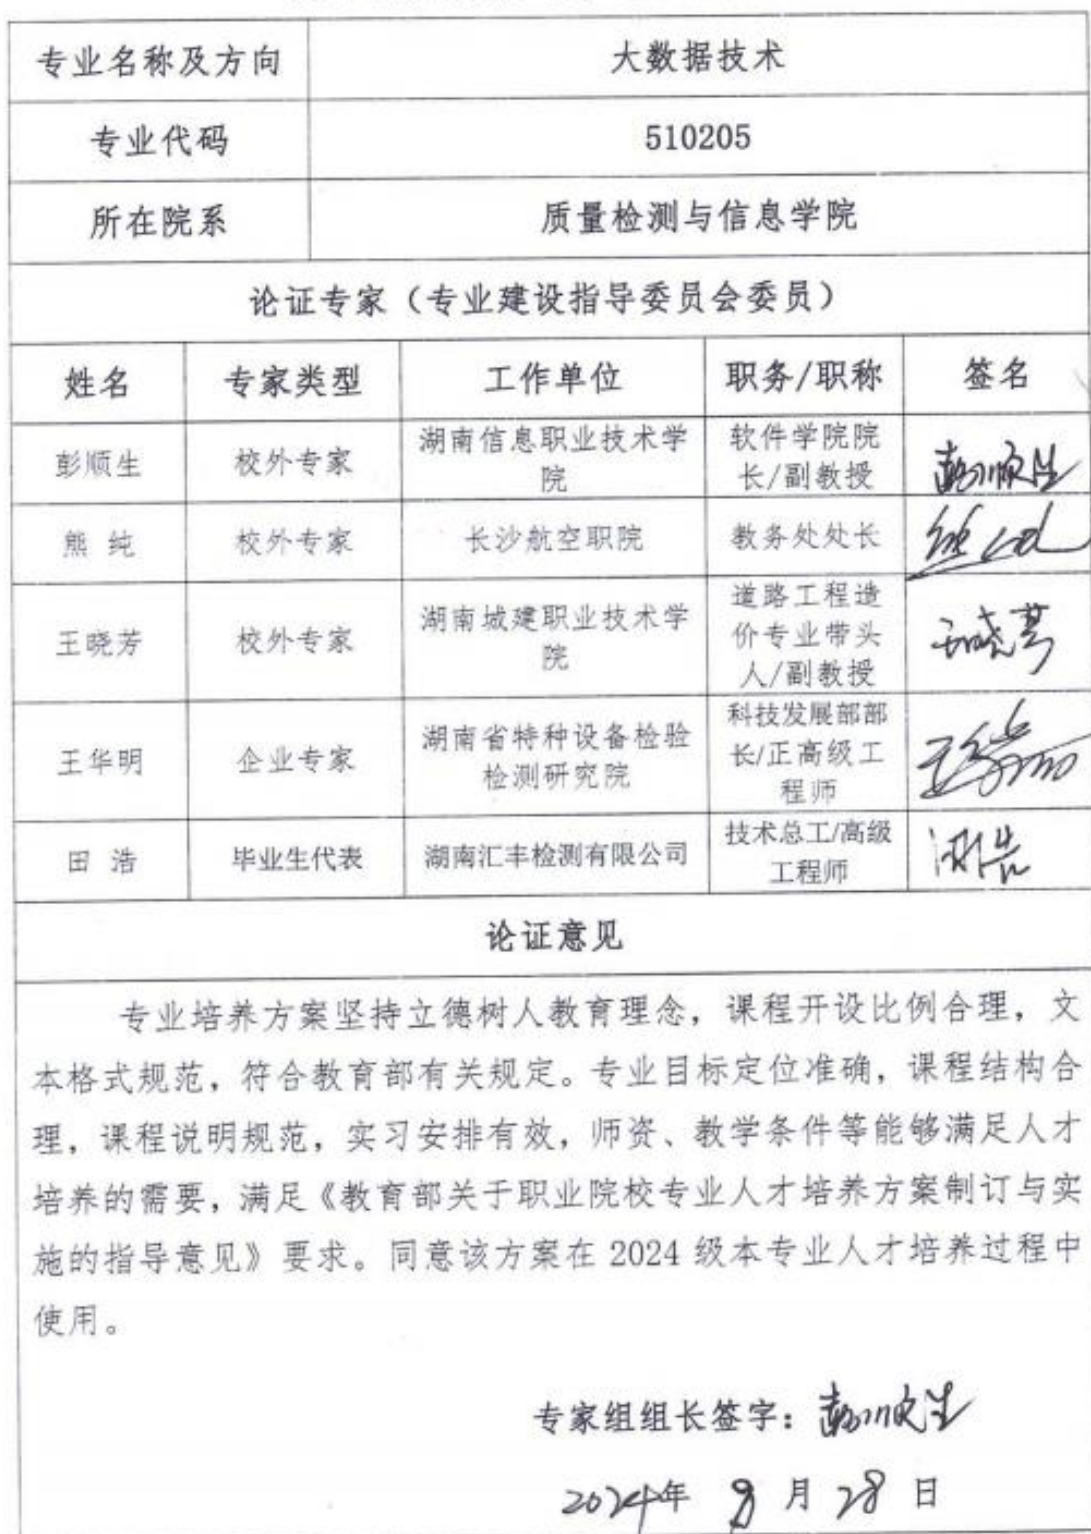 专业名称及方向 大数据技术
专业代码 510205
所在院系 质量检测与信息学院
论证专家（专业建设指导委员会委员）
姓名 专家类型 工作单位 职务/职称 签名
彭顺生 校外专家 湖南信息职业技术学
院 软件学院院
长/副教授 彭顺生
熊 纯 校外专家 长沙航空职院 教务处处长 熊纯
王晓芳 校外专家 湖南城建职业技术学
院 道路工程造
价专业带头
人/副教授 王晓芳
王华明 企业专家 湖南省特种设备检验
检测研究院 科技发展部部
长/正高级工
程师 王华明
田 浩 毕业生代表 湖南汇丰检测有限公司 技术总工/高级
工程师 田浩
论证意见
专业培养方案坚持立德树人教育理念，课程开设比例合理，文
本格式规范，符合教育部有关规定。专业目标定位准确，课程结构合
理，课程说明规范，实习安排有效，师资、教学条件等能够满足人才
培养的需要，满足《教育部关于职业院校专业人才培养方案制订与实
施的指导意见》要求。同意该方案在 2024 级本专业人才培养过程中
使用。
专家组组长签字：彭顺生
2024年 8 月 28 日